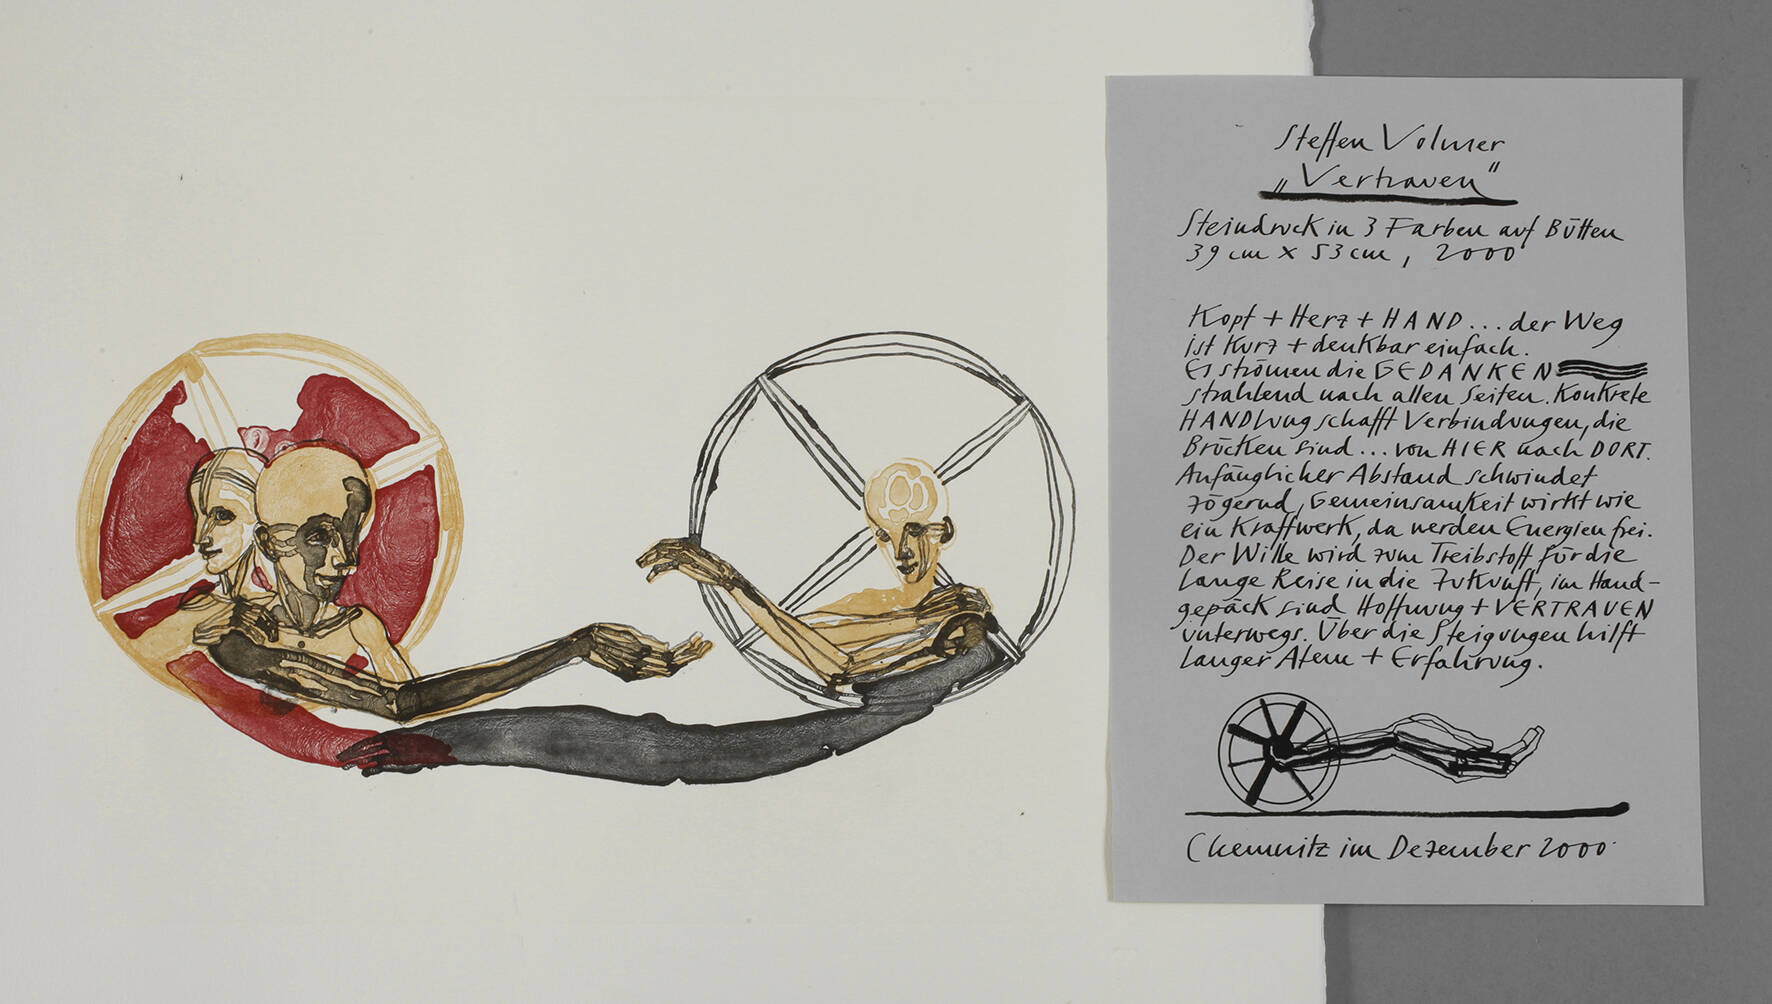 Steffen Volmer
„Vertrauen"
Steindruck in 3 Farben auf Bütten
39 cm x 53 cm, 2000
Kopf + Herz + HAND... der Weg
ist kurz + denkbar einfach.
Es strömen die GEDANKEN
strahlend nach allen Seiten. Konkrete
HANDlung schafft Verbindungen, die
Brücken sind... von HIER nach DORT.
Anfänglicher Abstand schwindet
zögernd, Gemeinsamkeit wirkt wie
ein Kraftwerk, da werden Energien frei.
Der Wille wird zum Treibstoff für die
lange Reise in die Zukunft, im Hand-
gepäck sind Hoffnung + VERTRAUEN
unterwegs. Über die Steigungen hilft
langer Atem + Erfahrung.
Chemnitz im Dezember 2000